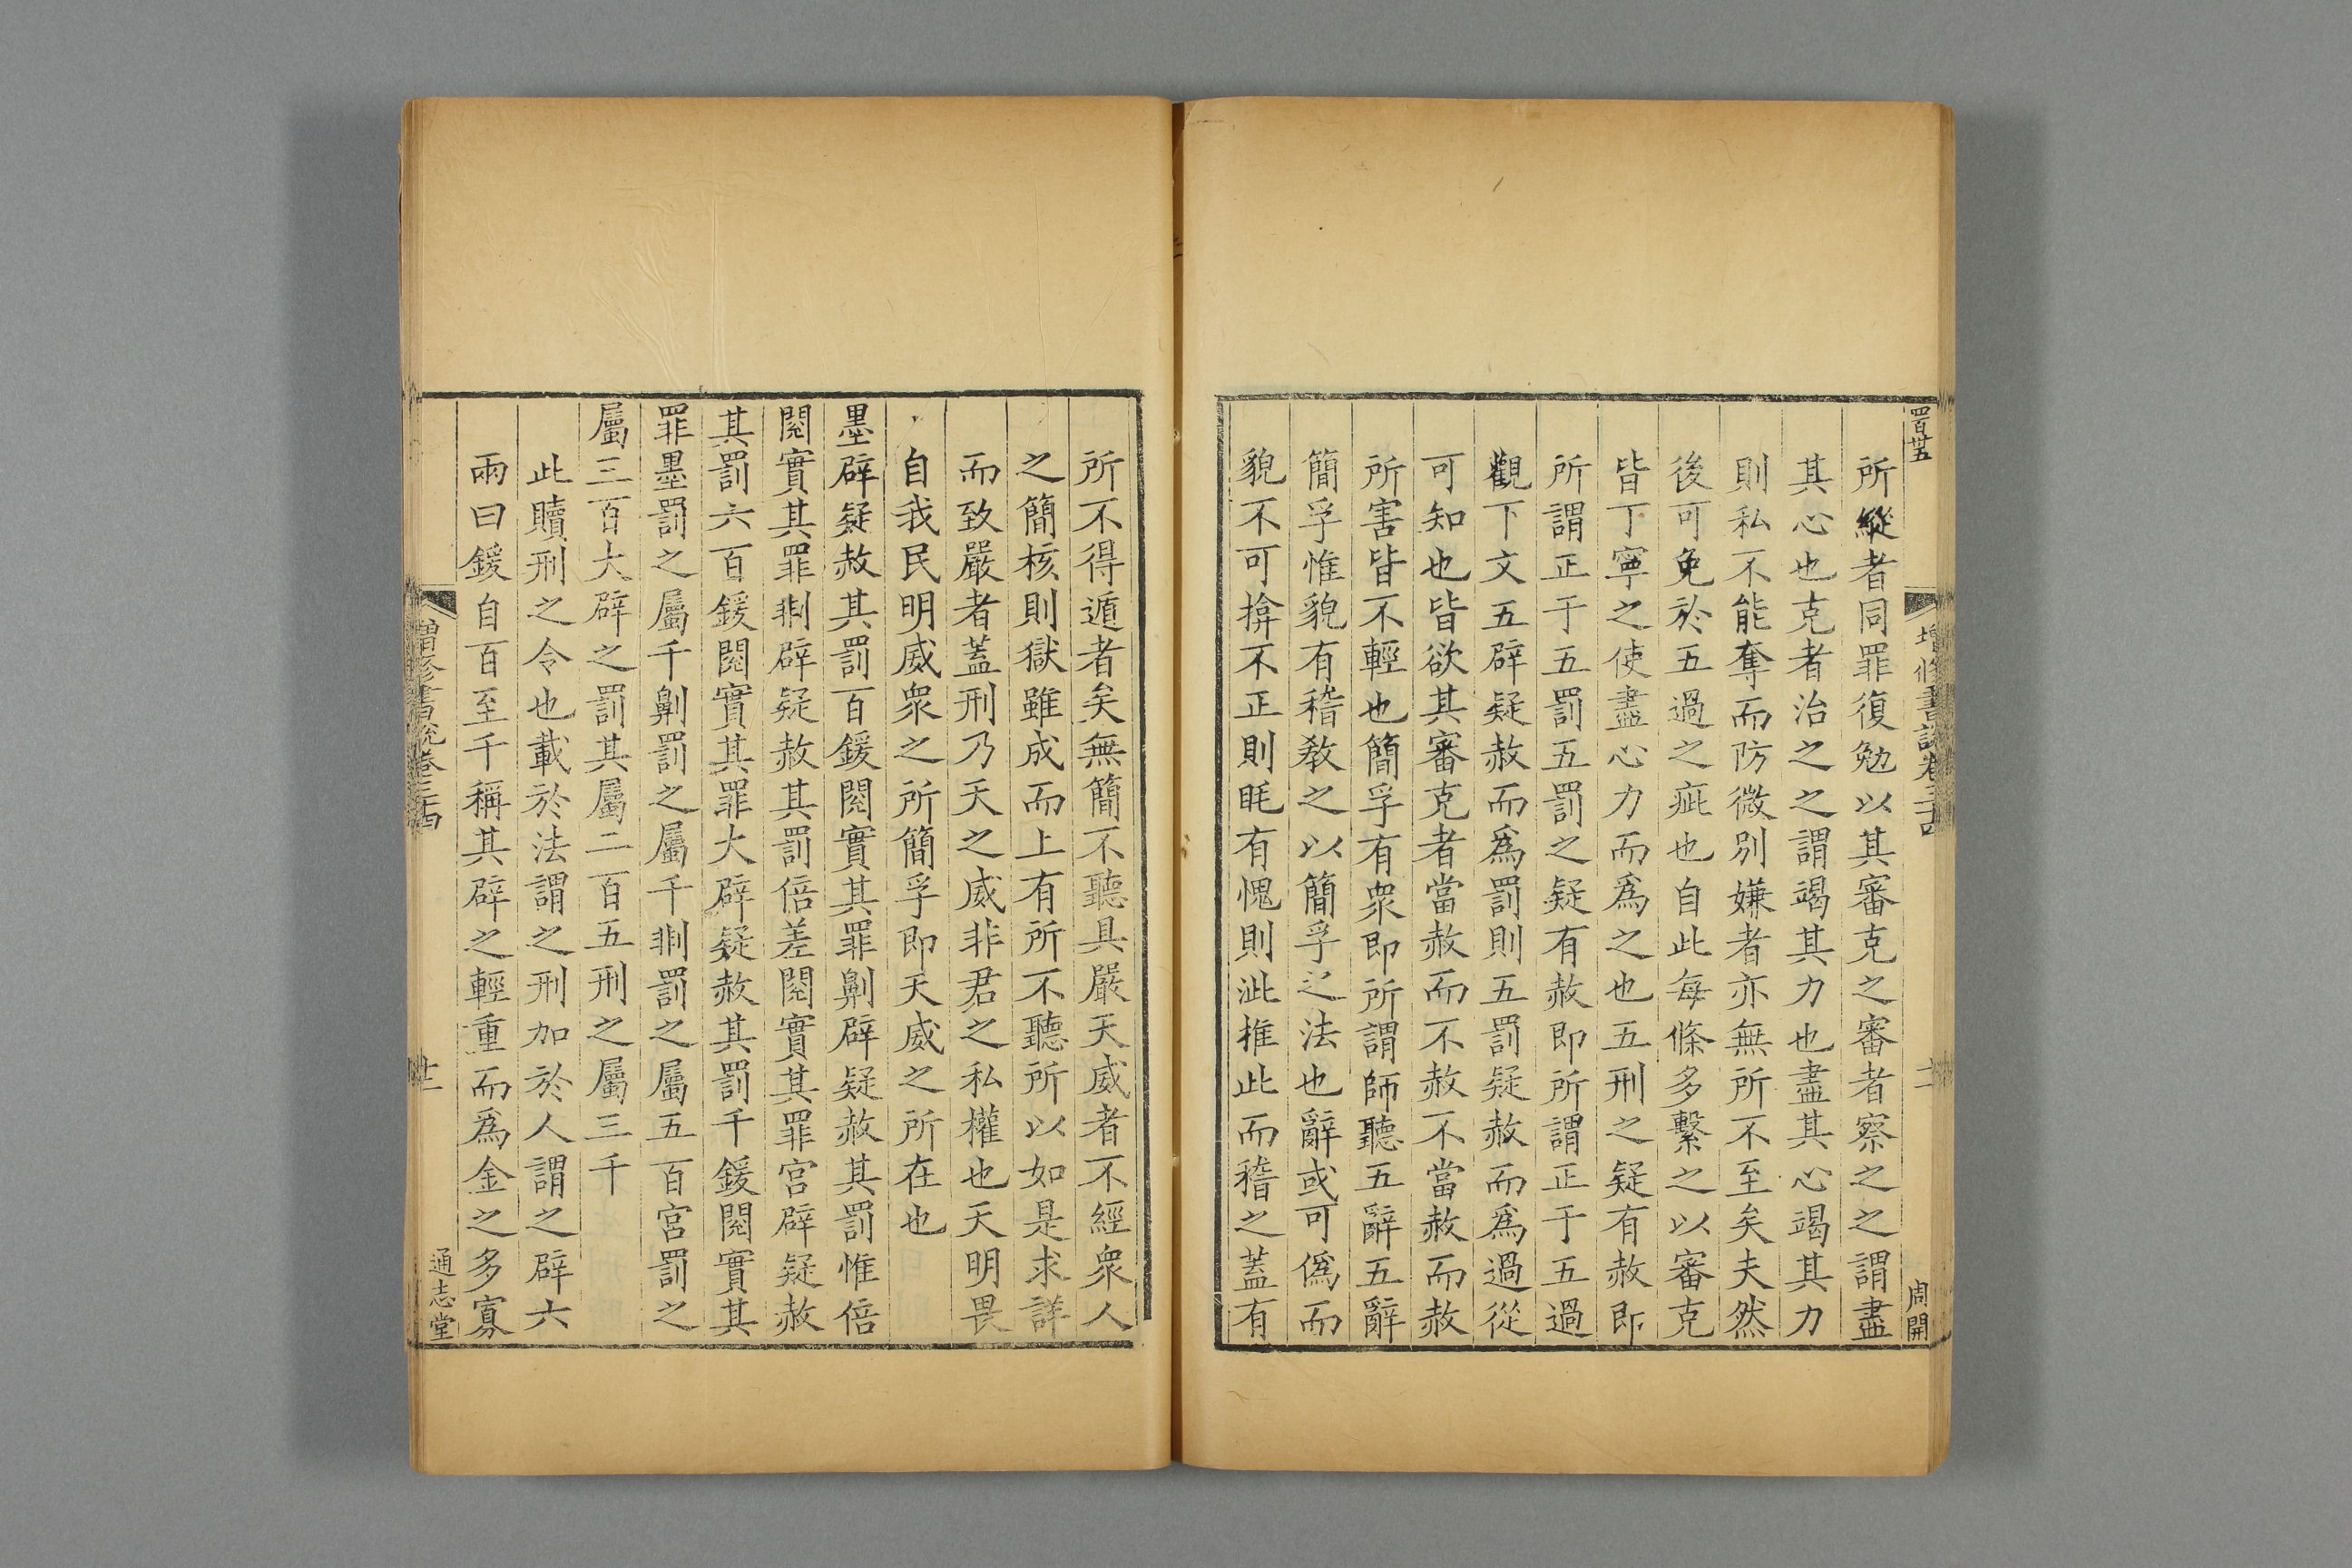 增修書說卷三十四
周開
所縱者同罪復勉以其審克之審者察之之謂盡
其心也克者治之之謂竭其力也盡其心竭其力
則私不能奪而防微別嫌者亦無所不至矣夫然
後可免於五過之疵也自此每條多繫之以審克
皆丁寧之使盡心力而爲之也五刑之疑有赦即
所謂正于五罰五罰之疑有赦即所謂正于五過
觀下文五辟疑赦而爲罰則五罰疑赦而爲過從
可知也皆欲其審克者當赦而不赦不當赦而赦
所害皆不輕也簡孚有衆即所謂師聽五辭五辭
簡孚惟貌有稽敎之以簡孚之法也辭或可僞而
貌不可揜不正則眊有愧則泚推此而稽之蓋有
所不得遁者矣無簡不聽具嚴天威者不經衆人
之簡核則獄雖成而上有所不聽所以如是求詳
而致嚴者蓋刑乃天之威非君之私權也天明畏
自我民明威衆之所簡孚即天威之所在也
墨辟疑赦其罰百鍰閱實其罪劓辟疑赦其罰惟倍
閱實其罪剕辟疑赦其罰倍差閱實其罪宮辟疑赦
其罰六百鍰閱實其罪大辟疑赦其罰千鍰閱實其
罪墨罰之屬千劓罰之屬千剕罰之屬五百宮罰之
屬三百大辟之罰其屬二百五刑之屬三千
此贖刑之令也載於法謂之刑加於人謂之辟六
兩曰鍰自百至千稱其辟之輕重而爲金之多寡
增修書說卷三十四
通志堂